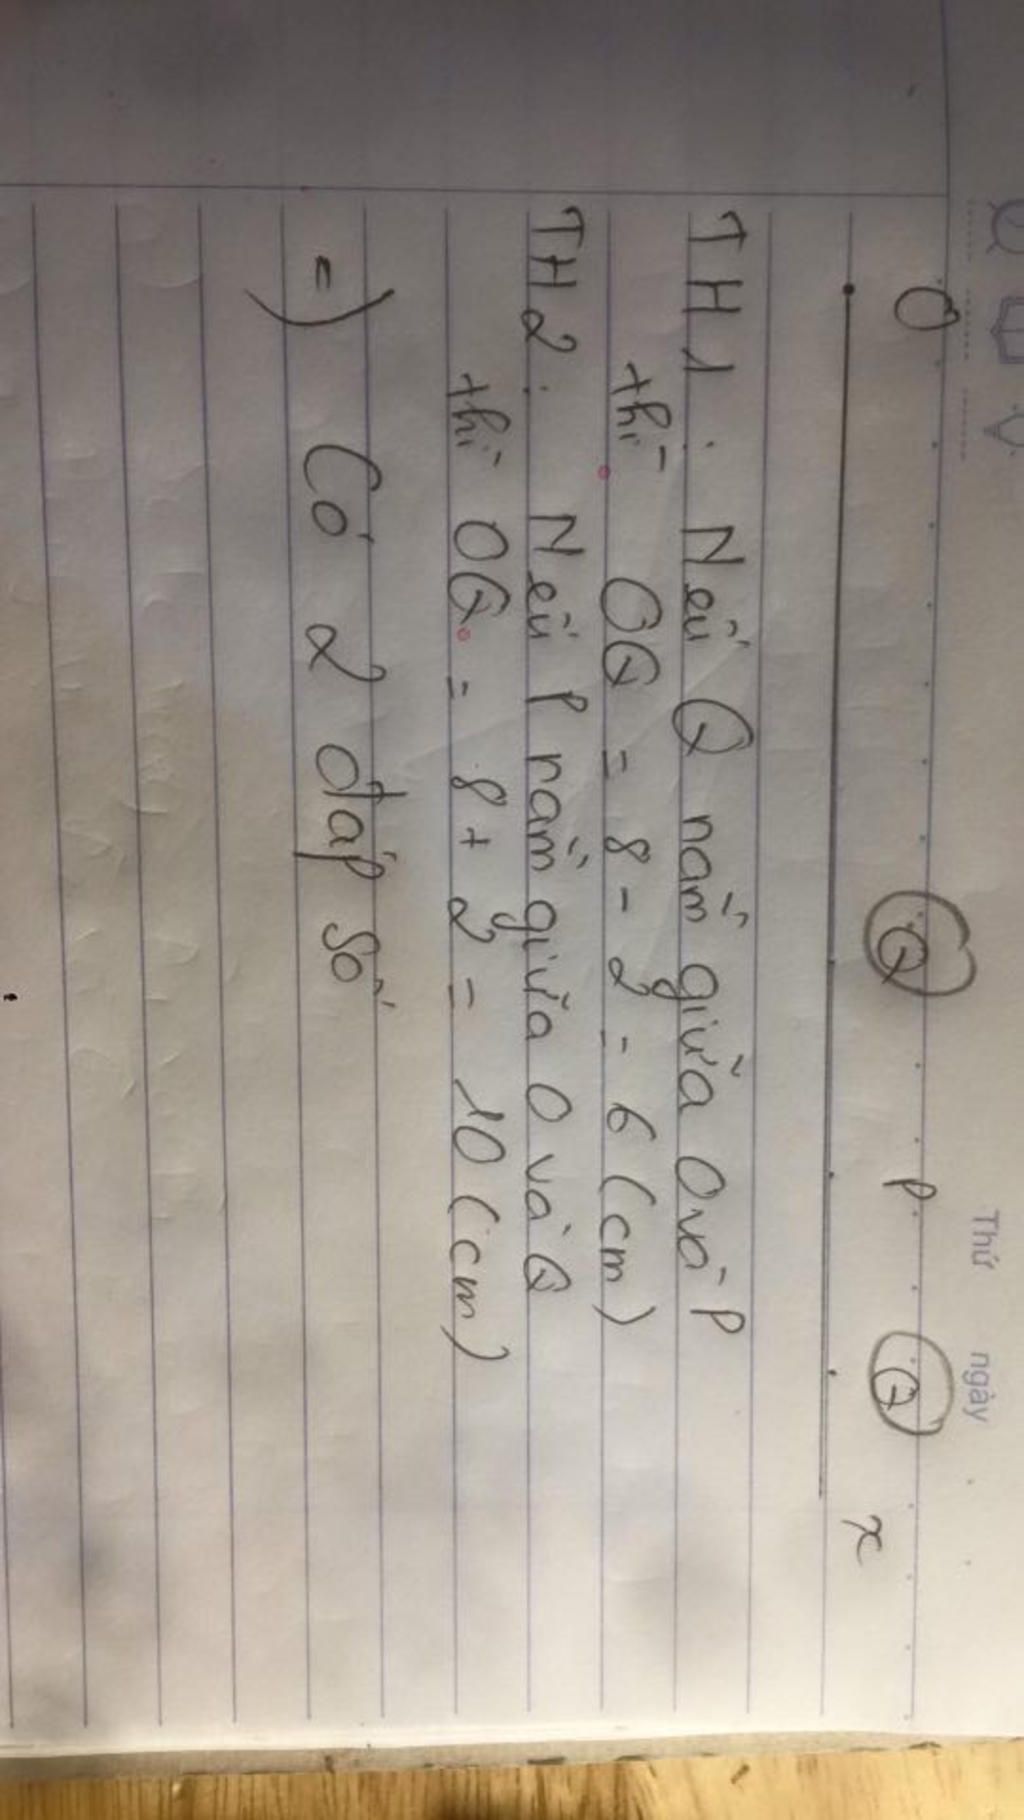 Thứ ngày
O Q P Q x
TH1: Nếu Q nằm giữa O và P
thì OQ = 8 - 2 = 6 (cm)
TH2: Nếu P nằm giữa O và Q
thì OQ = 8 + 2 = 10 (cm)
=) Có 2 đáp số